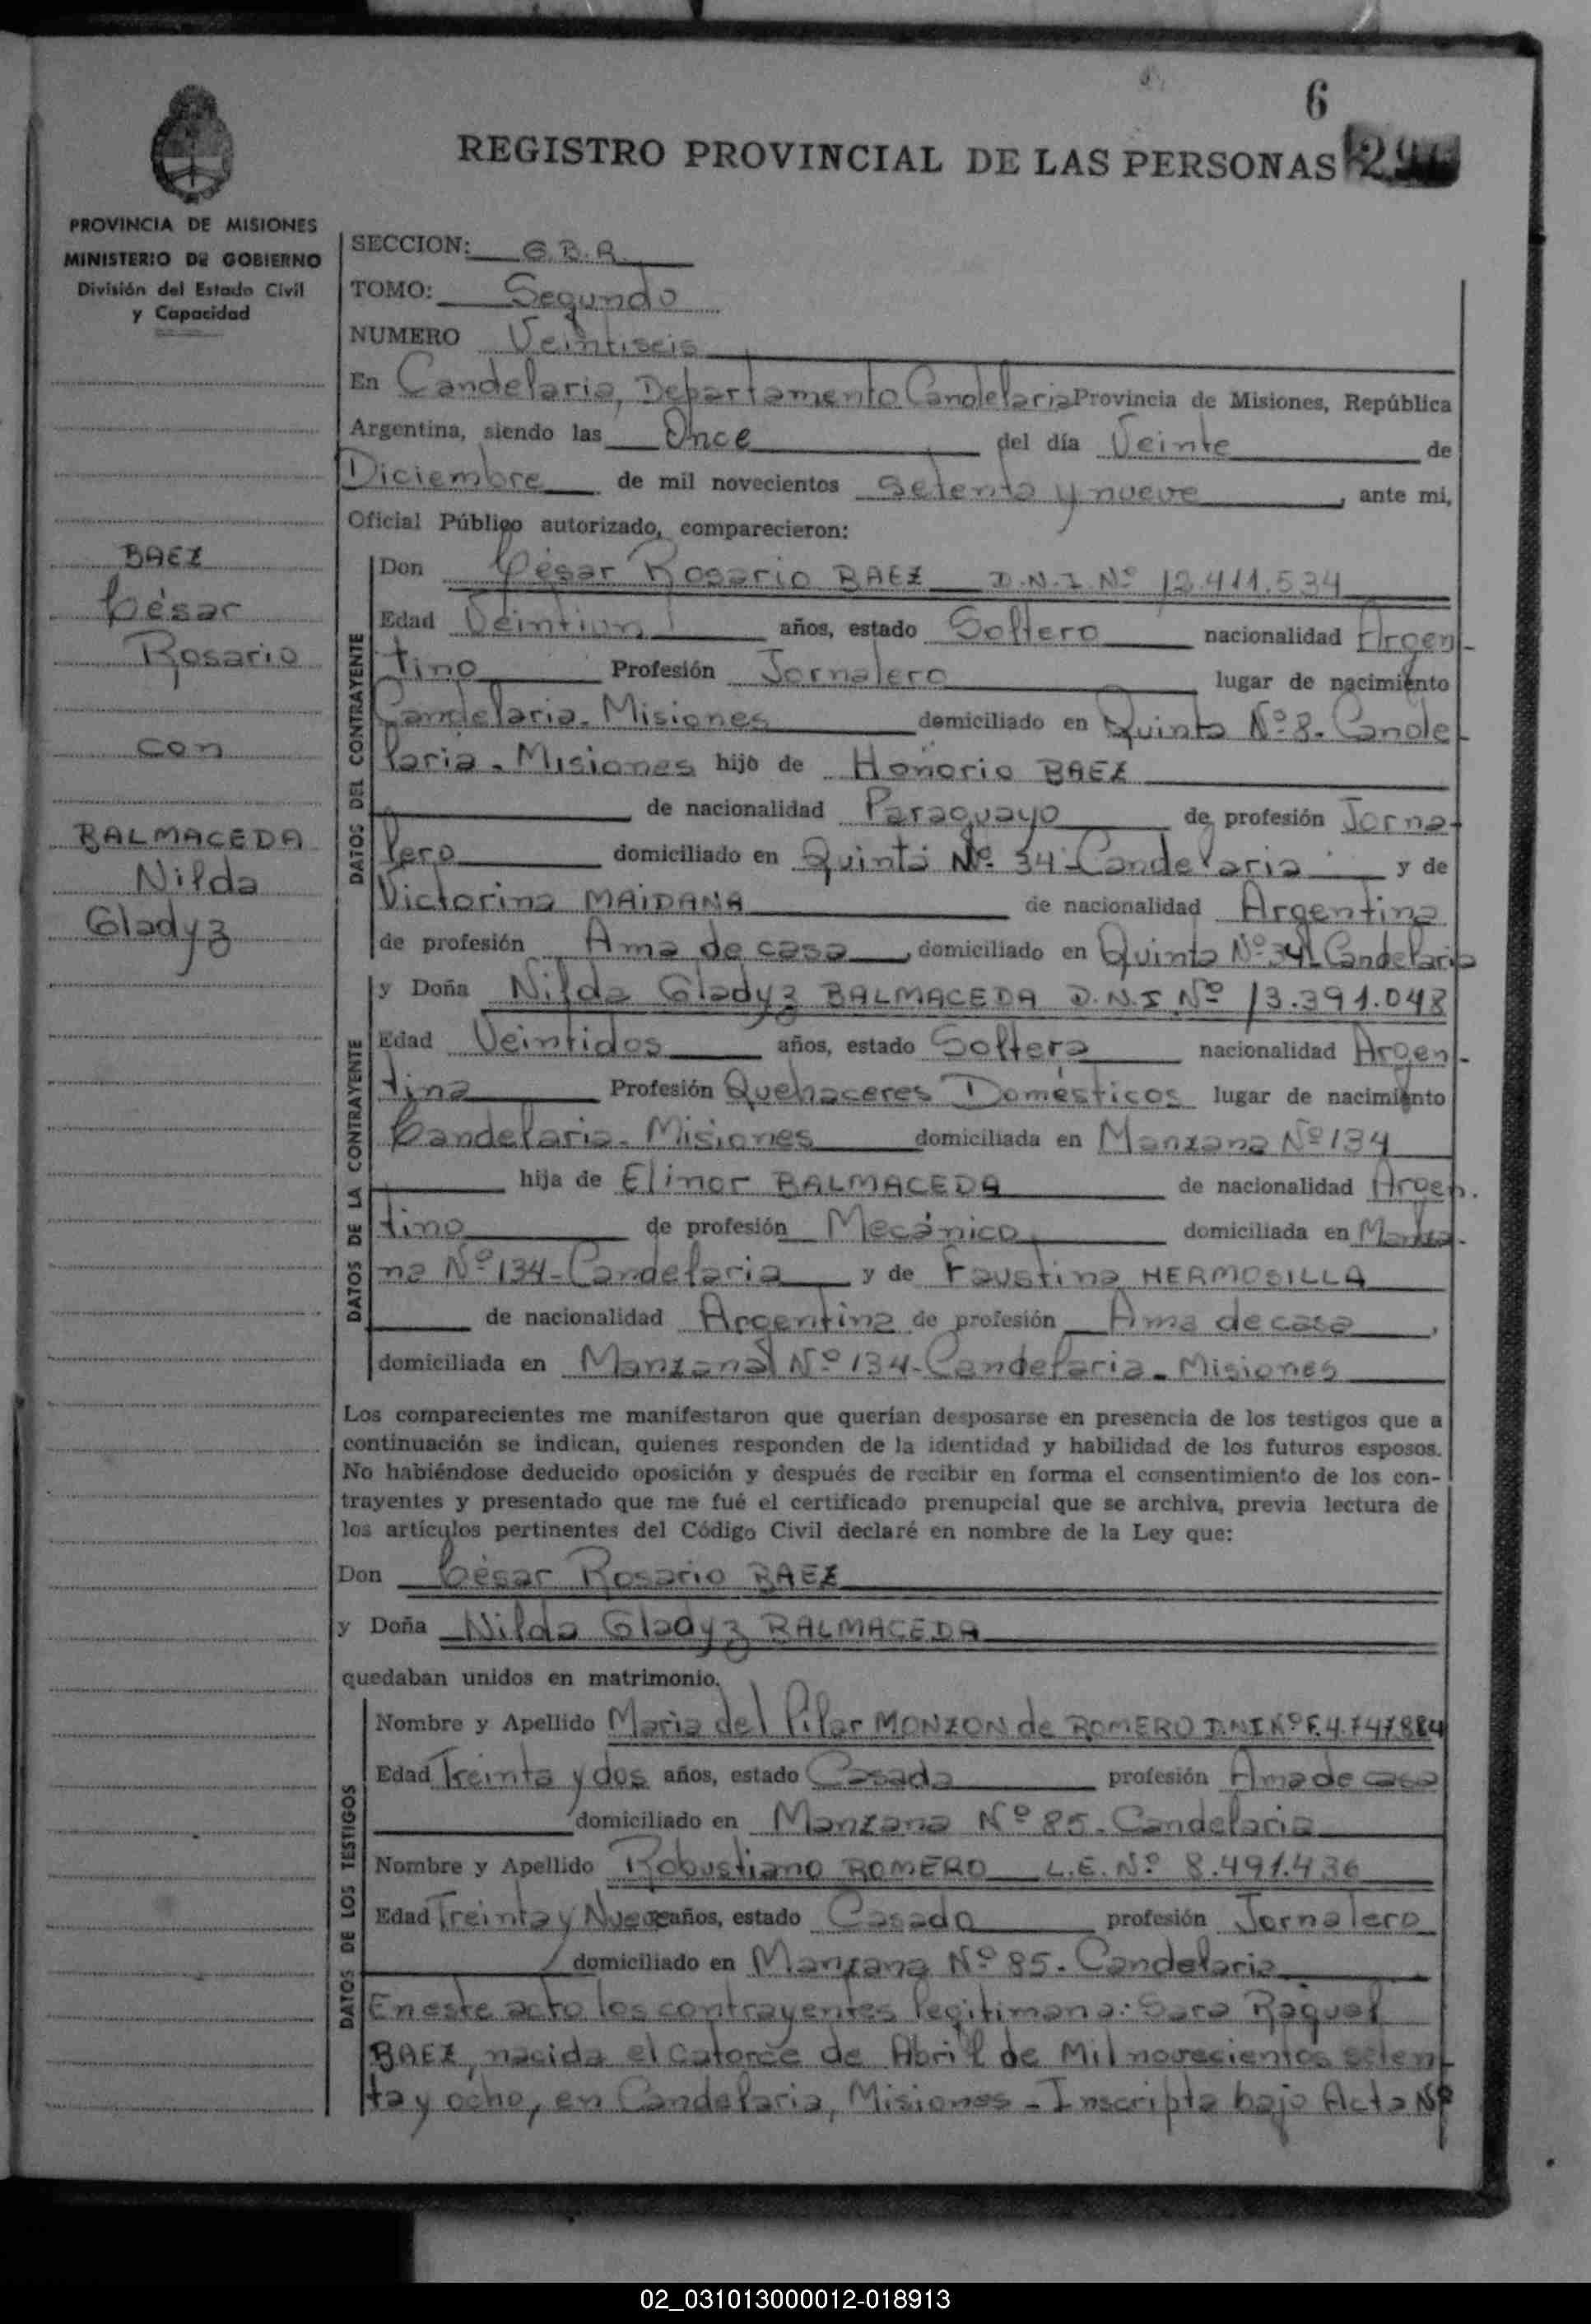 6
REGISTRO PROVINCIAL DE LAS PERSONAS
PROVINCIA DE MISIONES
MINISTERIO DE GOBIERNO
División del Estado Civil
y Capacidad
BAEZ
César
Rosario
con
BALMACEDA
Nilda
Gladyz
SECCION: G.B.R.
TOMO: Segundo
NUMERO Veintiseis
En Candelaria, Departamento Candelaria Provincia de Misiones, República
Argentina, siendo las Once del día Veinte de
Diciembre de mil novecientos setenta y nueve, ante mi,
Oficial Público autorizado, comparecieron:
DATOS DEL CONTRAYENTE
Don César Rosario BAEZ D.N.I. Nº 12.411.534
Edad Veintiun años, estado Soltero nacionalidad Argen-
tino Profesión Jornalero lugar de nacimiento
Candelaria. Misiones domiciliado en Quinta Nº 8. Cande
laria. Misiones hijo de Honorio BAEZ
de nacionalidad Paraguayo de profesión Jorna-
lero domiciliado en Quinta Nº 34-Candelaria y de
Victorina MAIDANA de nacionalidad Argentina
de profesión Ama de casa, domiciliado en Quinta Nº 34-Candelaria
DATOS DE LA CONTRAYENTE
y Doña Nilda Gladyz BALMACEDA D.N.I. Nº 13.391.048
Edad Veintidos años, estado Soltera nacionalidad Argen-
tina Profesión Quehaceres Domésticos lugar de nacimiento
Candelaria. Misiones domiciliada en Manzana Nº 134
hija de Elinor BALMACEDA de nacionalidad Argen.
tino de profesión Mecánico domiciliada en Manza-
na Nº 134-Candelaria y de Faustina HERMOSILLA
de nacionalidad Argentina de profesión Ama de casa,
domiciliada en Manzana Nº 134-Candelaria. Misiones
Los comparecientes me manifestaron que querían desposarse en presencia de los testigos que a
continuación se indican, quienes responden de la identidad y habilidad de los futuros esposos.
No habiéndose deducido oposición y después de recibir en forma el consentimiento de los con-
trayentes y presentado que me fué el certificado prenupcial que se archiva, previa lectura de
los artículos pertinentes del Código Civil declaré en nombre de la Ley que:
Don César Rosario BAEZ
y Doña Nilda Gladyz BALMACEDA
quedaban unidos en matrimonio.
DATOS DE LOS TESTIGOS
Nombre y Apellido Maria del Pilar MONZON de ROMERO D.N.I Nº F.4.747.884
Edad Treinta y dos años, estado Casada profesión Ama de casa
domiciliado en Manzana Nº 85. Candelaria
Nombre y Apellido Robustiano ROMERO L.E. Nº 8.491.436
Edad Treinta y Nueve años, estado Casado profesión Jornalero
domiciliado en Manzana Nº 85. Candelaria
En este acto los contrayentes legitiman a: Sara Raquel
BAEZ, nacida el catorce de Abril de Mil novecientos seten-
ta y ocho, en Candelaria, Misiones - Inscripta bajo Acta Nº
02_031013000012-018913